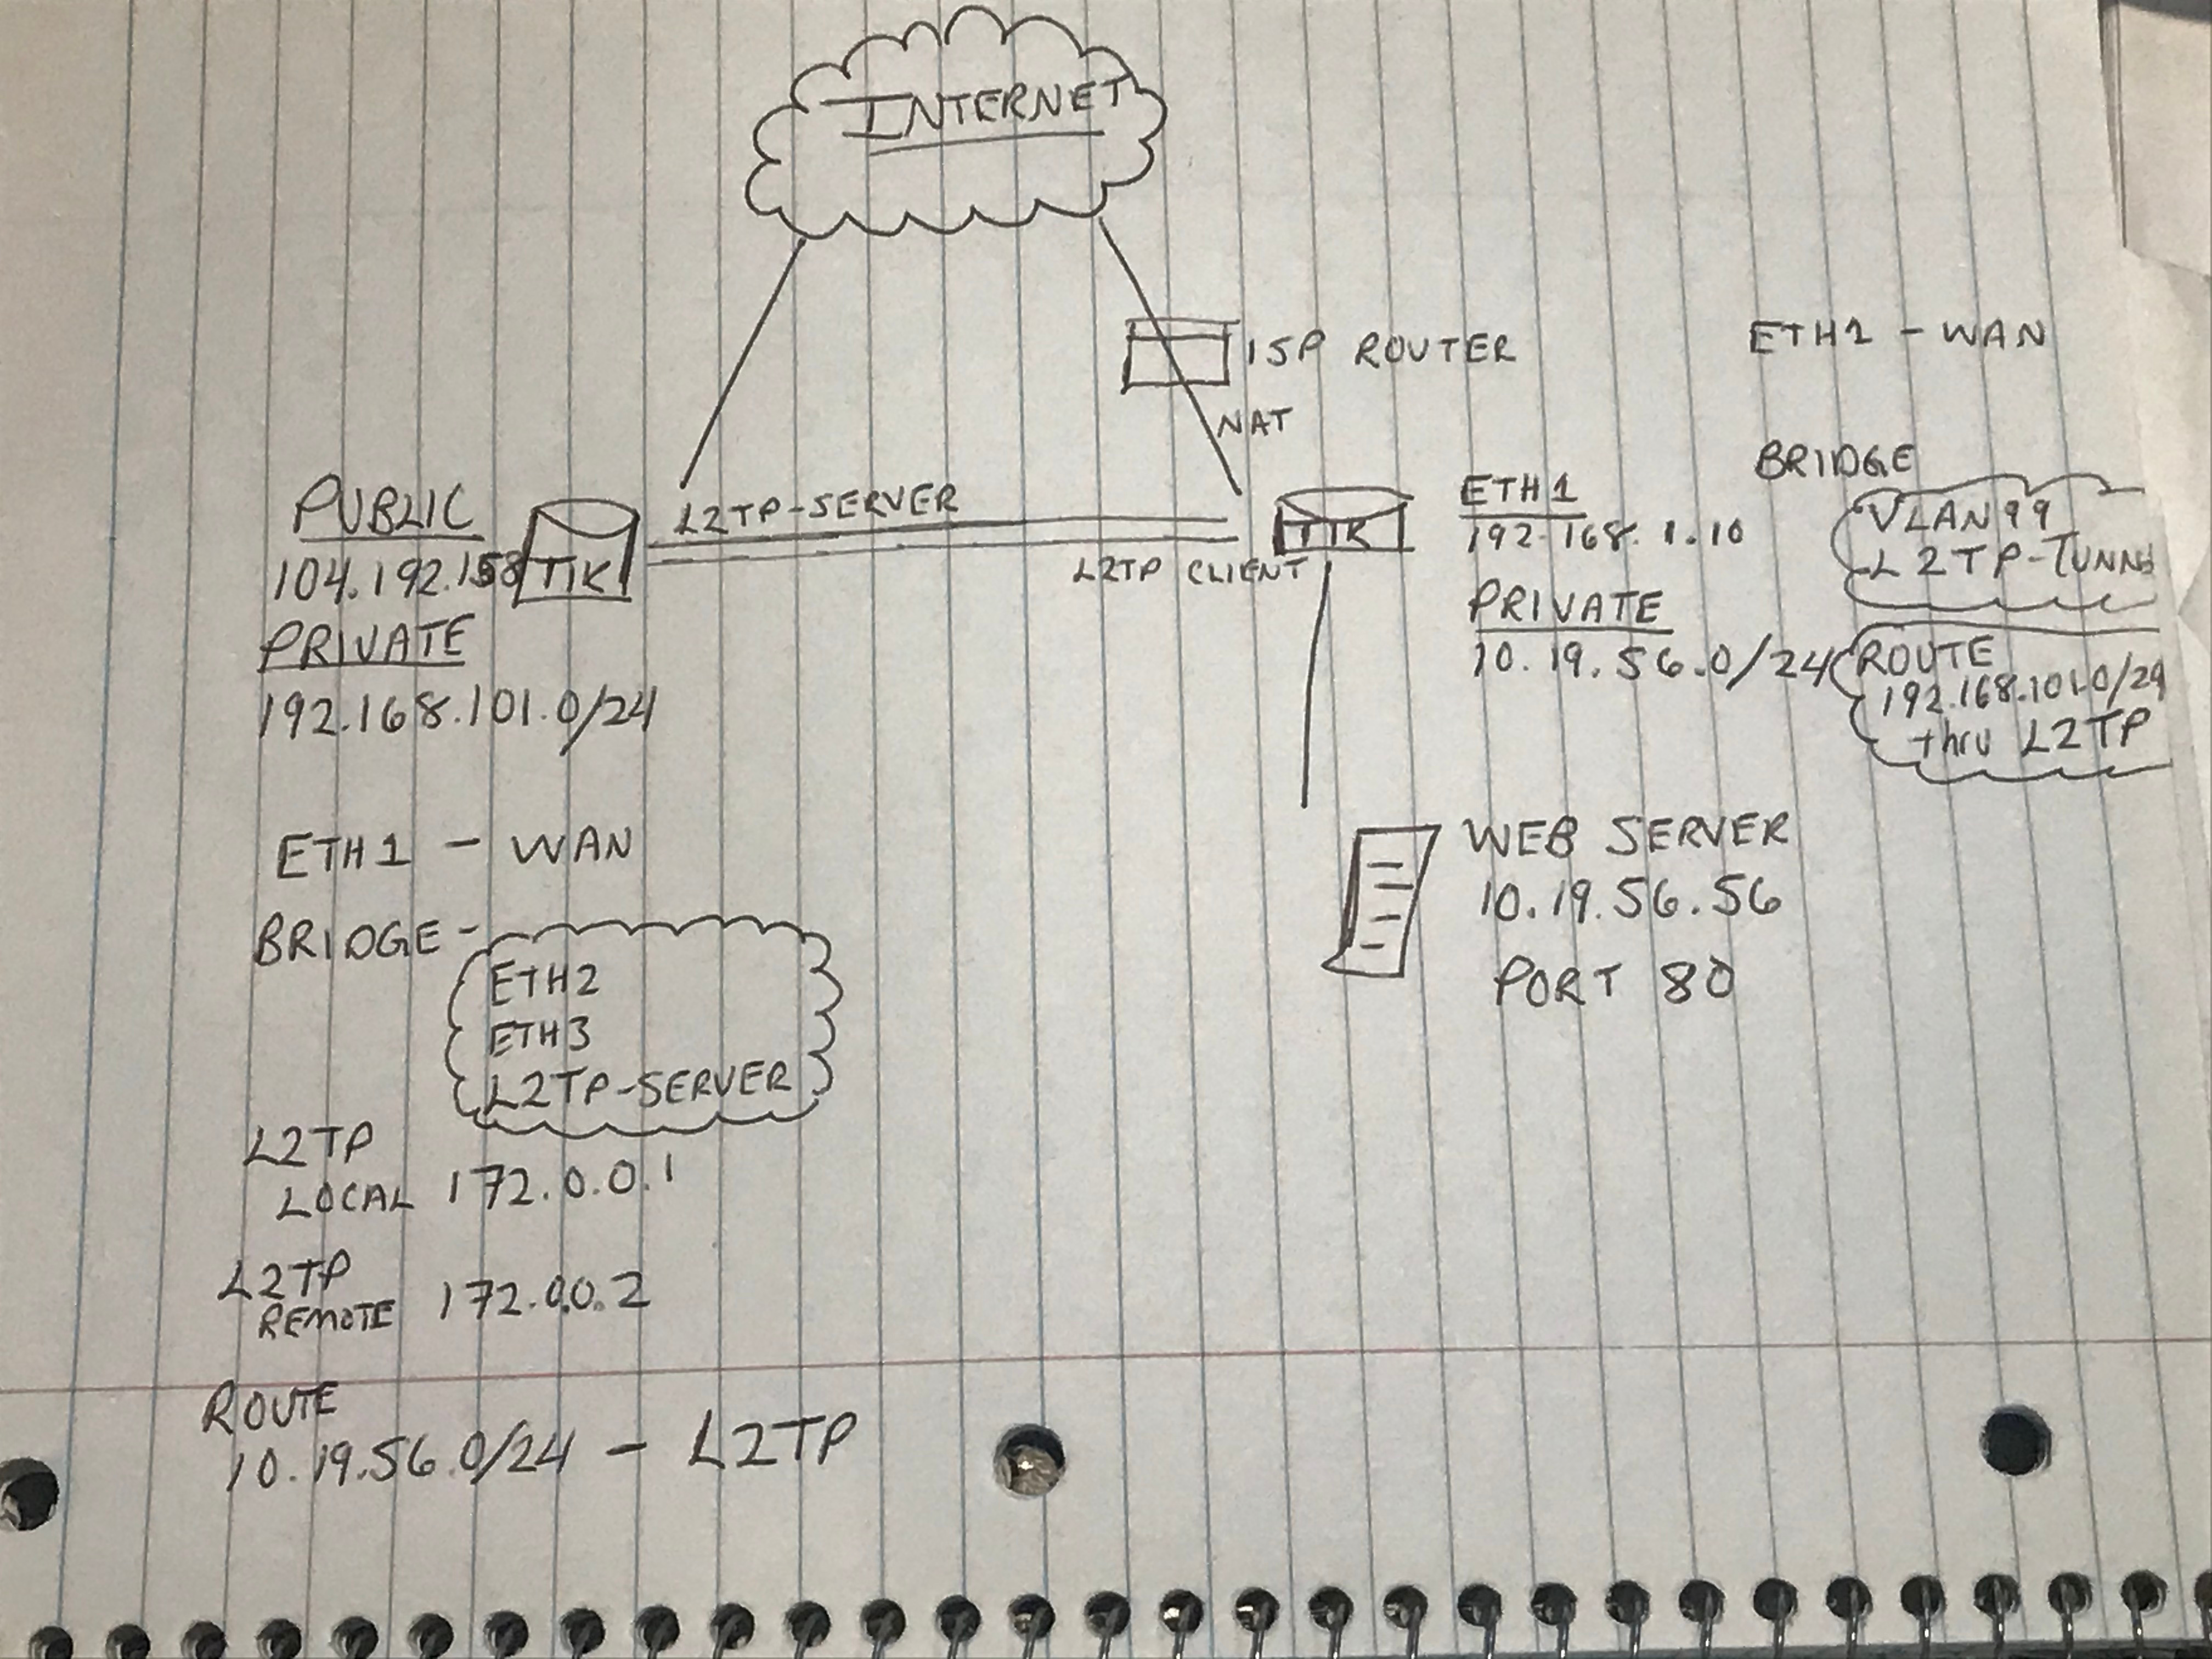 INTERNET
ISP ROUTER
NAT
ETH1 - WAN
BRIDGE
VLAN99
L2TP-TUNNE
ROUTE
192.168.101.0/24
thru L2TP
PUBLIC
104.192.158
TIK
PRIVATE
192.168.101.0/24
L2TP-SERVER
L2TP CLIENT
TIK
ETH1
192.168.1.10
PRIVATE
10.19.56.0/24
WEB SERVER
10.19.56.56
PORT 80
ETH1 - WAN
BRIDGE -
ETH2
ETH3
L2TP-SERVER
L2TP
LOCAL 172.0.0.1
L2TP
REMOTE 172.0.0.2
ROUTE
10.19.56.0/24 - L2TP